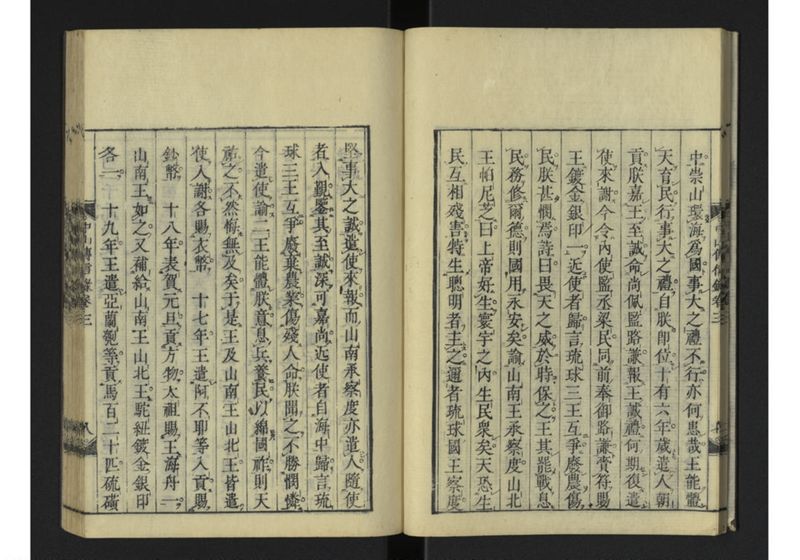 中崇山環海為國事大之禮不行亦何患哉王能體
天育民行事大之禮自朕即位十有六年歲遣人朝
貢朕嘉王至誠命尚佩監路謙報王誠禮何期復遣
使來謝今令內使監丞梁民同前奉御路謙賫符賜
王鍍金銀印一近使者歸言琉球三王互爭廢農傷
民朕甚憫焉詩曰畏天之威於時保之王其罷戰息
民務修爾德則國用永安矣諭山南王承察度山北
王帕尼芝曰上帝好生寰宇之內生民衆矣天恐生
民互相殘害特生聰明者主之邇者琉球國王察度
堅事大之誠遣使來報而山南承察度亦遣人隨使
者入覲鑒其至誠深可嘉尚近使者自海中歸言琉
球三王互爭廢棄農業傷殘人命朕聞之不勝憫憐
今遣使諭二王能體朕意息兵養民以綿國祚則天
祐之不然悔無及矣于是王及山南王山北王皆遣
使人謝各賜衣幣 十七年王遣阿不耶等入貢賜
鈔幣 十八年表賀元旦貢方物太祖賜王海舟一
山南王如之又補給山南王山北王駝紐鍍金銀印
各一 十九年王遣亞蘭匏等貢馬百二十匹硫磺
中山傳信錄卷三 八